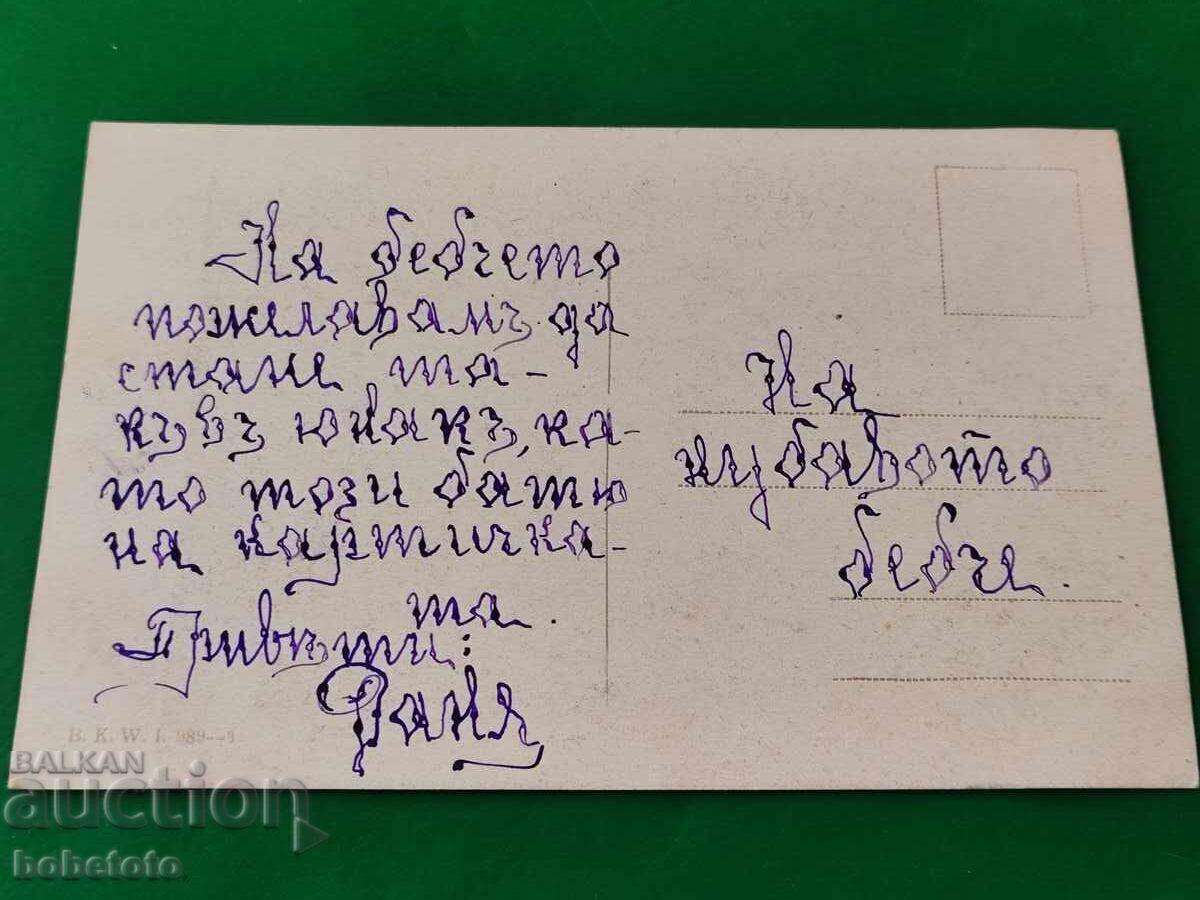 На бебчето
пожелавамъ да
стане та-
къвъ юнакъ, ка-
то този батю
на картичка-
та.
Приветъ:
Раня
На
хубавото
бебче.
B. K. W. I. 989—
BALKAN
auction
bobetoto